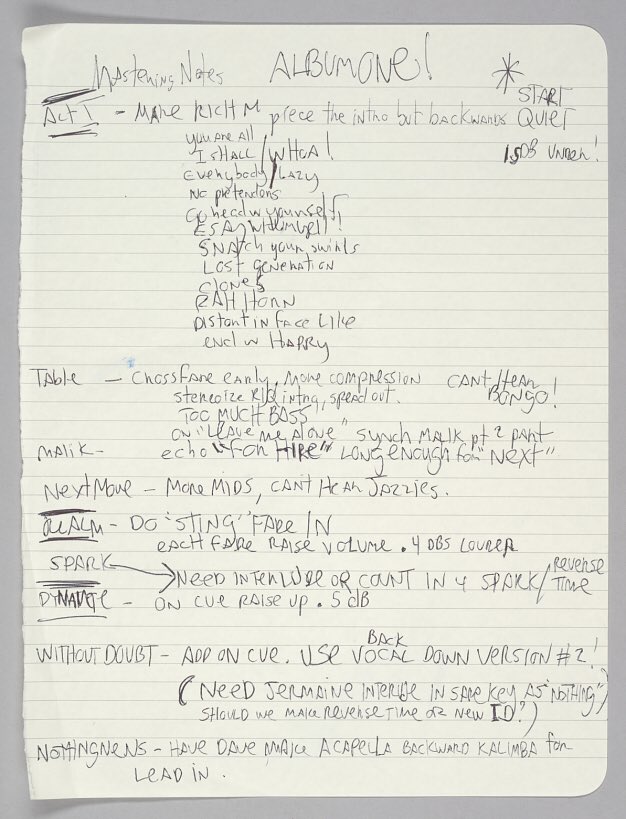 Mastering Notes ALBUM ONE!
*
START
Act I - MAKE RICH M piece the intro but backwards QUIET
you are all
I SHALL / WHOA!
1.5DB UNDER!
Everybody / LAZY
No pretendons
Go head w yourself!
SNAtch your swirls
LOST generation
clones
RAH HORN
Distant in face like
end w HAPPY
TABLE - Crossfade early, More compression CANT Hear
stereoize Rio intro, spread out. BONGO!
TOO MUCH BASS
ON "LEAVE me Alone" synch MALIK pt 2 part
MALIK - echo "for HIRE" LONG enough for "NEXT"
NEXT Move - More MIDS, CANT Hear Jazzies.
REALM - DO "STING" FADE IN
EACH FADE RAISE VOLUME .4 DBS LOUDER
SPARK
NEED INTERLUDE OR COUNT IN 4 SPARK / REVERSE TIME
DYNAMITE - ON CUE RAISE UP .5 dB
BACK
WITHOUT DOUBT - ADD ON CUE. USE VOCAL DOWN VERSION #2!
(NEED JERMAINE INTERLUDE IN SAME KEY AS "NOTHING")
SHOULD WE MAKE REVERSE TIME OR NEW ID?)
NOTHINGNESS - HAVE DAVE MAKE ACAPELLA BACKWARD KALIMBA for
LEAD IN.